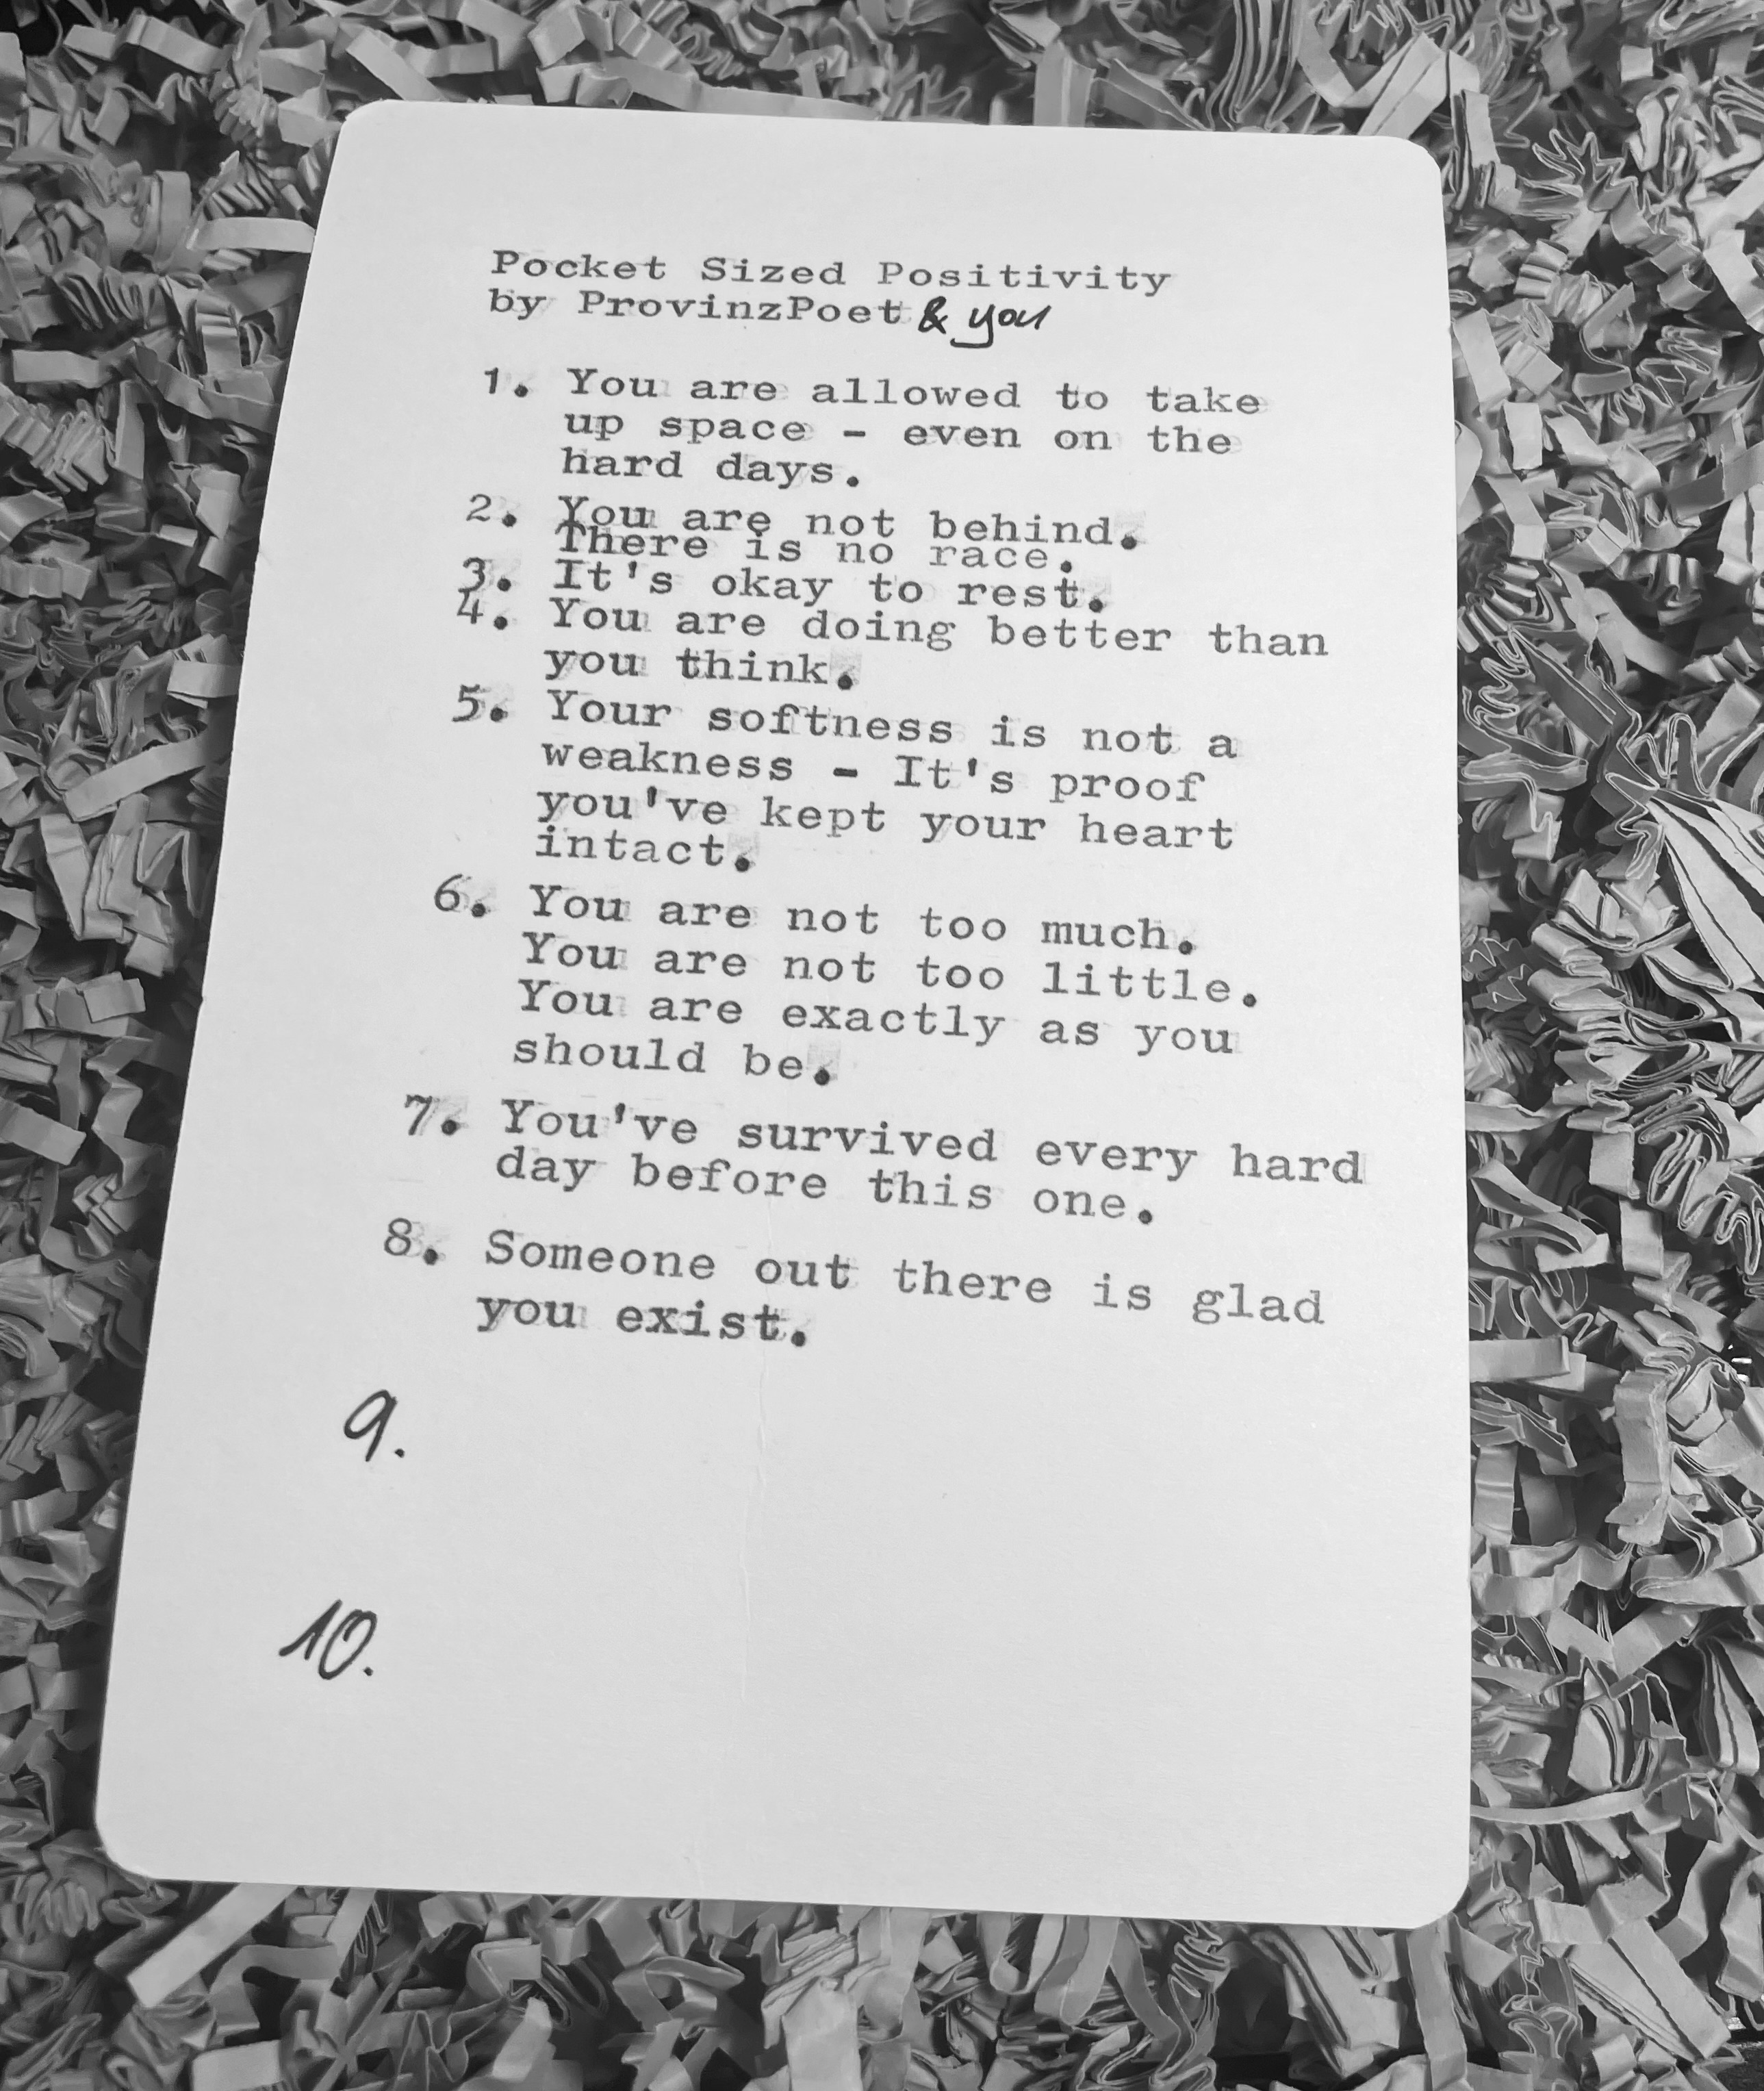 Pocket Sized Positivity
by ProvinzPoet & you
1. You are allowed to take
up space - even on the
hard days.
2. You are not behind.
There is no race.
3. It's okay to rest.
4. You are doing better than
you think.
5. Your softness is not a
weakness - It's proof
you've kept your heart
intact.
6. You are not too much.
You are not too little.
You are exactly as you
should be.
7. You've survived every hard
day before this one.
8. Someone out there is glad
you exist.
9.
10.